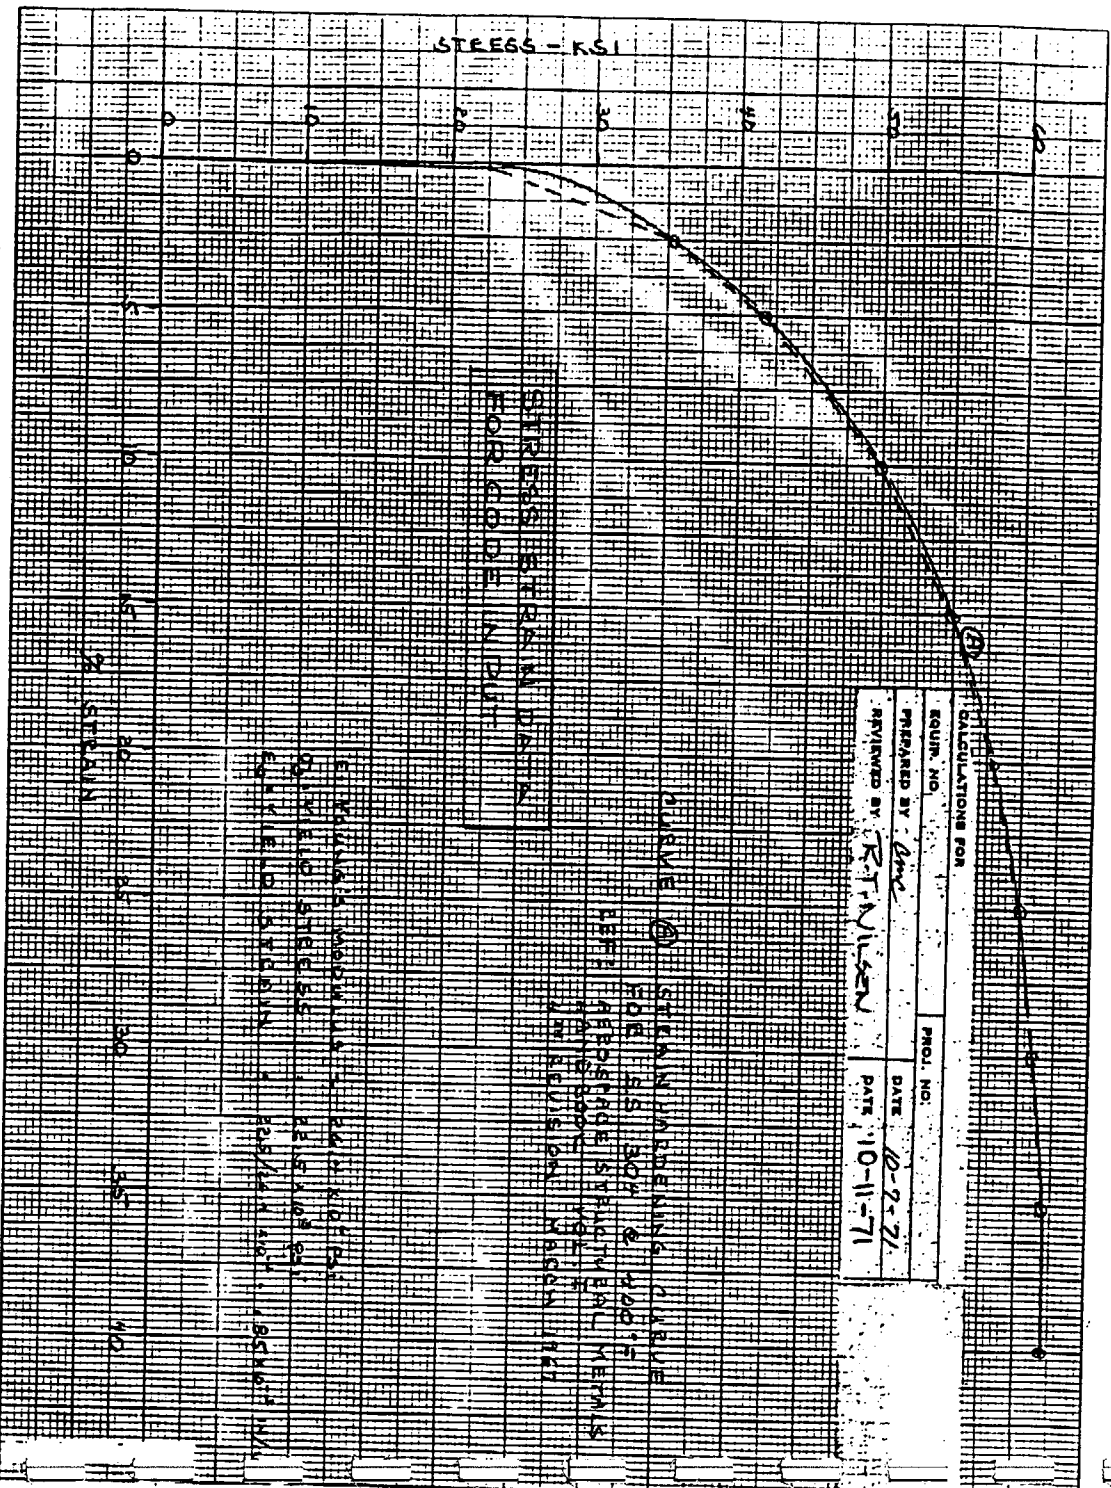 STRESS - KSI
0
10
20
30
40
50
60
0
5
10
15
20
25
30
35
40
% STRAIN
STRESS STRAIN DATA
FOR CODE INPUT
A
CALCULATIONS FOR
EQUIP. NO. PROJ. NO.
PREPARED BY DATE 10-7-71
REVIEWED BY RT NILSEN DATE 10-11-71
CURVE A STRAIN HARDENING CURVE
FOR SS 304 @ 400°F
REF: AEROSPACE STRUCTURAL METALS
HANDBOOK VOL I
4TH REVISION MARCH 1967
E: YOUNG'S MODULUS = 26.4 x10⁶ PSI
σ₀ = YIELD STRESS : 22.5 x10³ PSI
ε₀ = YIELD STRAIN = .85x10⁻³ IN/IN